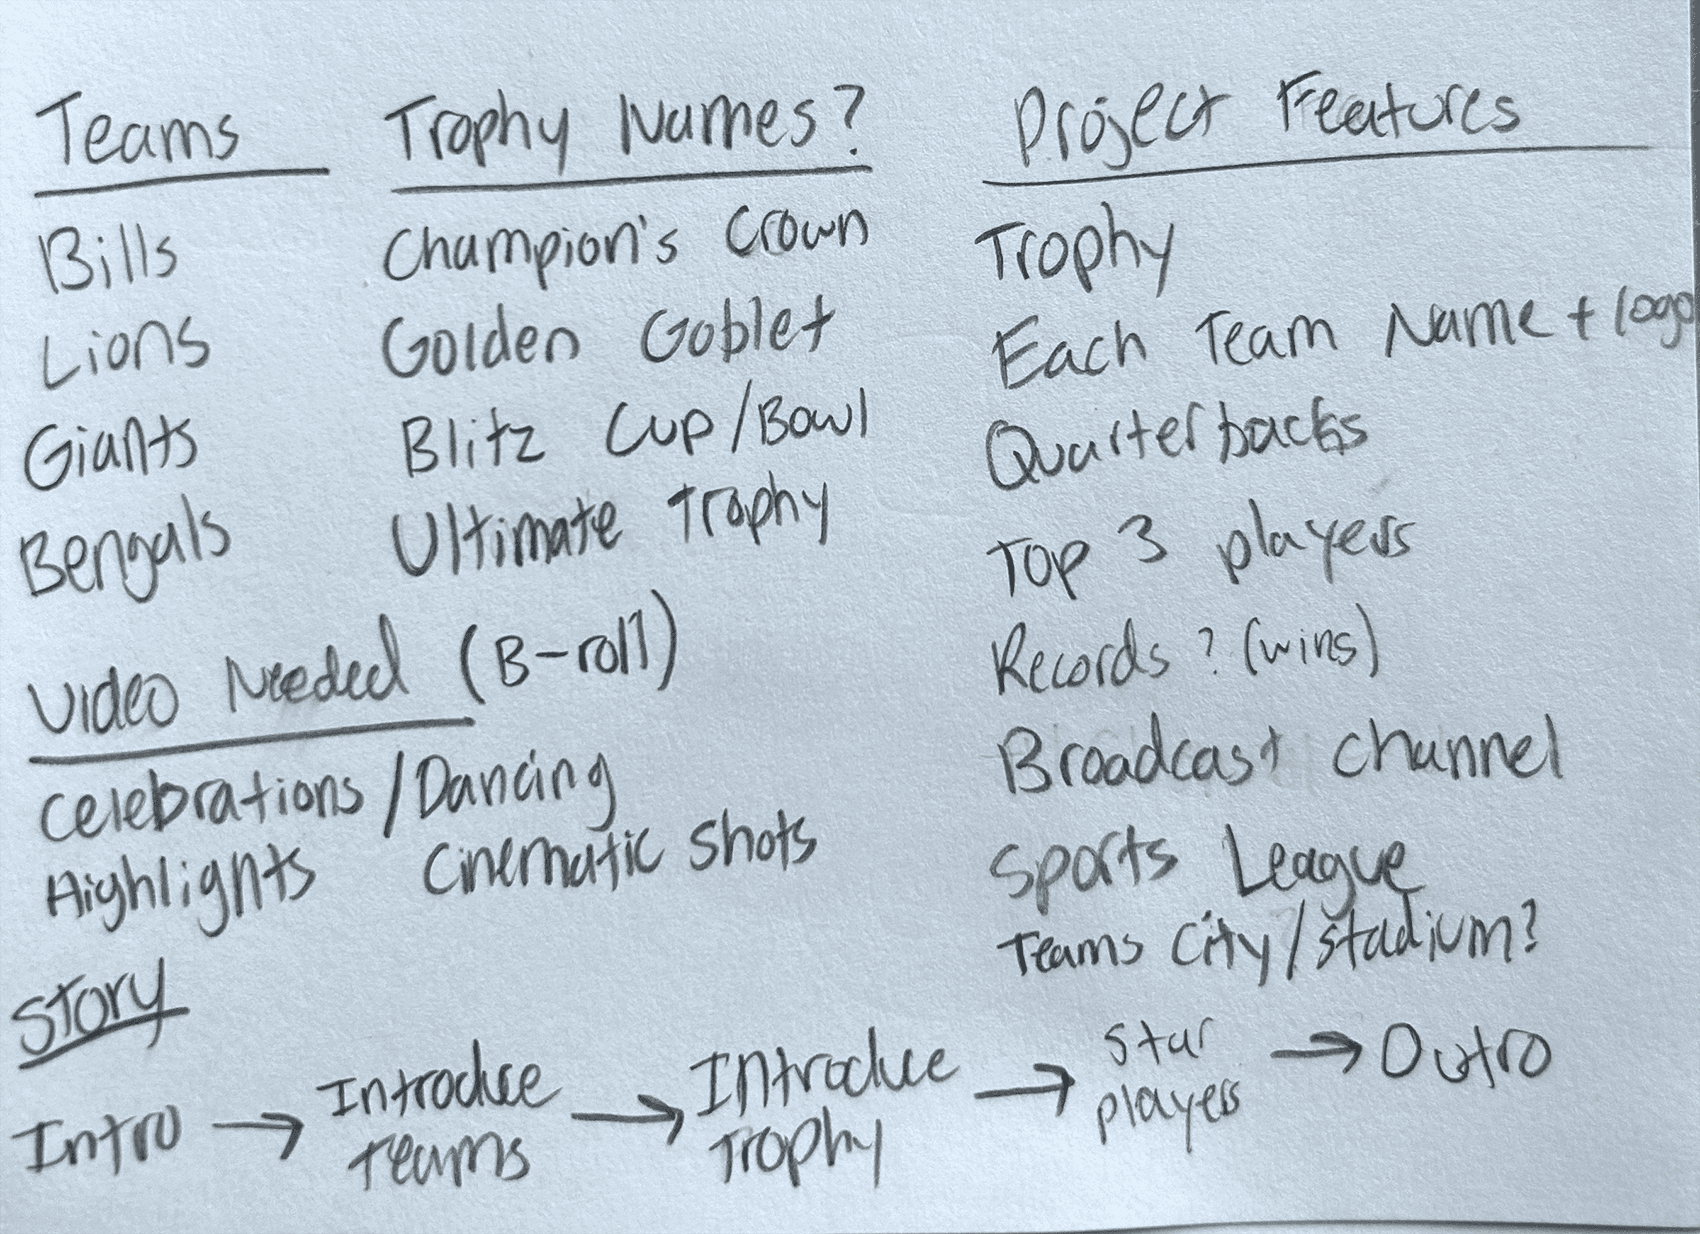 Teams
Bills
Lions
Giants
Bengals
Trophy Names?
Champion's Crown
Golden Goblet
Blitz Cup/Bowl
Ultimate Trophy
Project Features
Trophy
Each Team Name + logo
Quarterbacks
Top 3 players
Records? (wins)
Broadcast channel
Sports League
Teams City/stadium?
Video Needed (B-roll)
Celebrations/Dancing
Highlights Cinematic shots
Story
Intro → Introduce Teams → Introduce Trophy → Star players → Outro